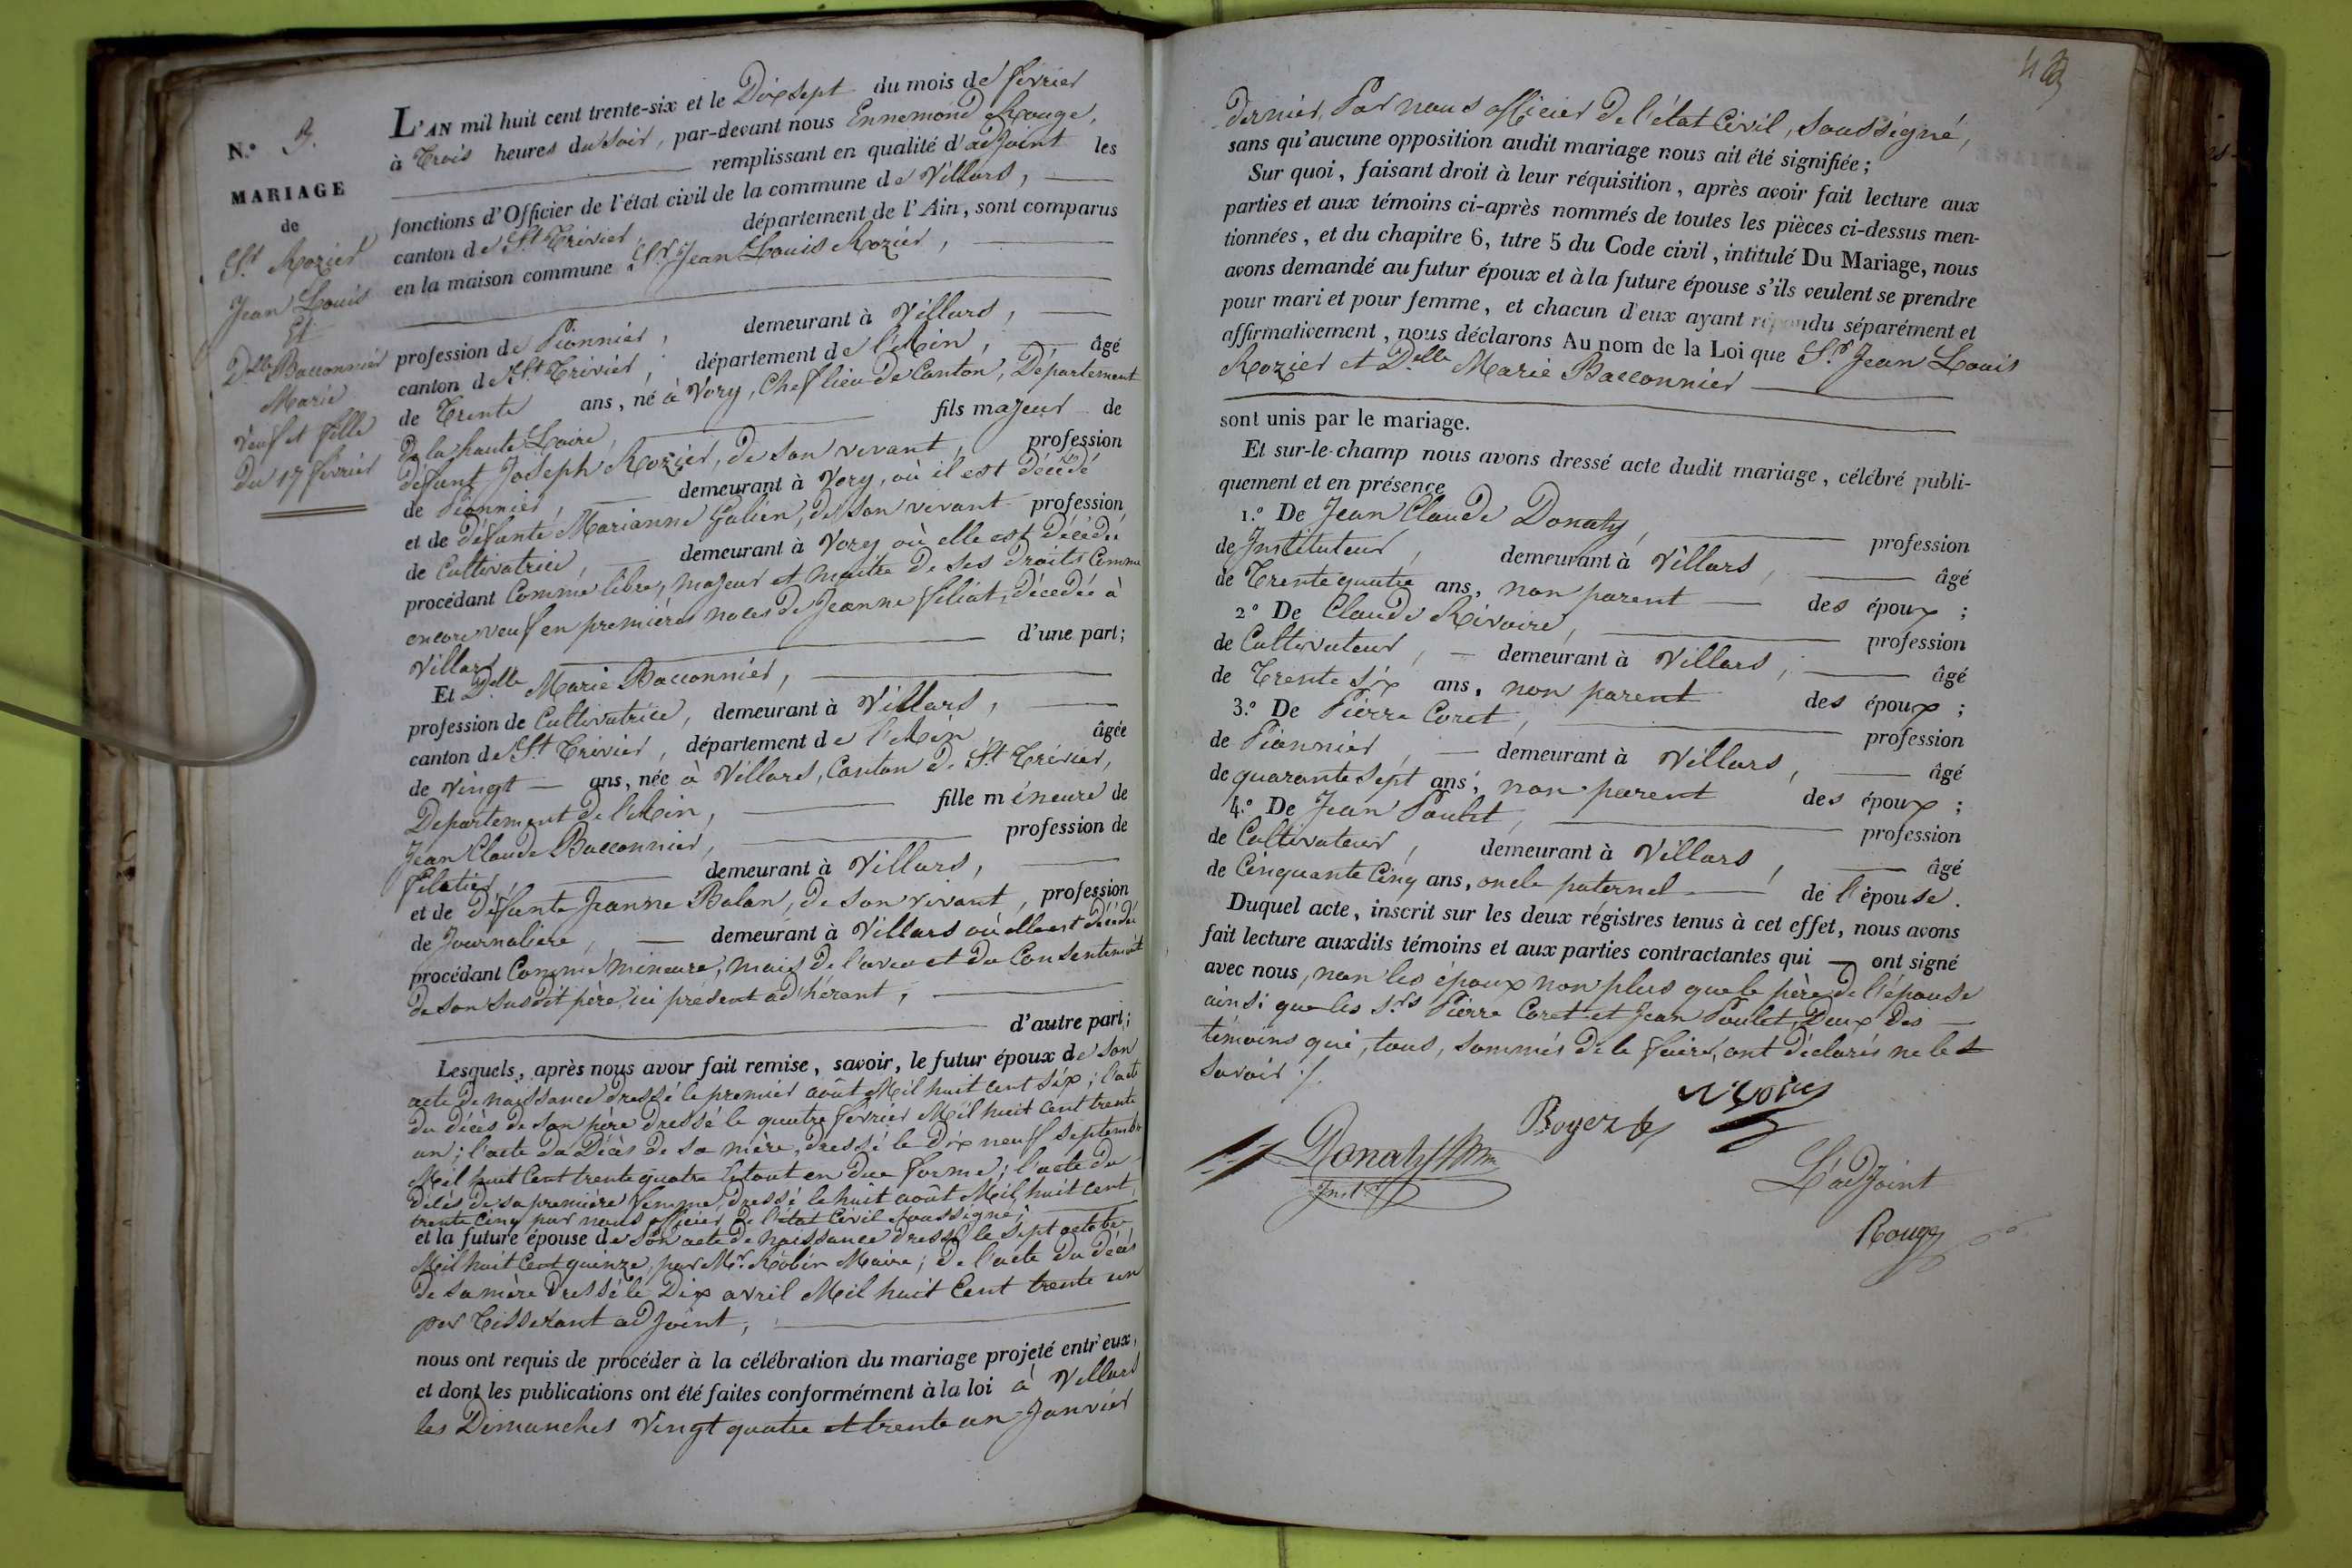 N.º 3.
MARIAGE
de
S.r Rozier
Jean Louis
Et
D.lle Bacconnier
Marie
Veuf et fille
du 17 février
L'AN mil huit cent trente-six et le Dix sept du mois de février
à Trois heures du Soir, par-devant nous Ennemond Rouge,
remplissant en qualité d'adjoint les
fonctions d'Officier de l'état civil de la commune de Villars,
canton de St. Trivier, département de l'Ain, sont comparus
en la maison commune S.r Jean Louis Rozier,
profession de Pionnier, demeurant à Villars,
canton de St. Trivier, département de l'Ain, âgé
de Trente ans, né à Vory, Chef lieu de Canton, Département
de la haute Loire, fils majeur de
défunt Joseph Rozier, de son vivant, profession
de Pionnier, demeurant à Vory, où il est décédé
et de défunte Marianne Galien, de son vivant profession
de Cultivatrice, demeurant à Vory où elle est décédée
procédant Comme libre, majeur et maître de ses droits Comme
encore veuf en premières noces de Jeanne filiat, décédée à
Villars d'une part;
Et D.elle Marie Bacconnier,
profession de Cultivatrice, demeurant à Villars,
canton de St. Trivier, département de l'Ain, âgée
de vingt ans, née à Villars, Canton de St. Trivier,
Departement de l'Ain, fille mineure de
Jean Claude Bacconnier, profession de
Filatier, demeurant à Villars,
et de défunte Jeanne Balan, de son vivant, profession
de Journalière, demeurant à Villars où elle est décédée
procédant Comme mineure, mais de l'aveu et du Consentement
de son susdit père, ici présent adhérant,
d'autre part;
Lesquels, après nous avoir fait remise, savoir, le futur époux de son
acte de naissance dressé le premier août Mil huit cent six; l'acte
du décès de son père dressé le quatre février Mil huit cent trente
un; l'acte du Décès de sa mère, dressé le dix neuf septembre
Mil huit Cent trente quatre le tout en due forme; l'acte du
décès de sa première femme, dressé le huit août Mil huit cent
trente cinq par nous officier de l'état Civil soussigné;
et la future épouse de son acte de naissance dressé le sept octobre
Mil huit Cent quinze, par Mr. Robin Maire; de l'acte du décès
de sa mère dressé le Dix avril Mil huit Cent trente un
par Tisserant adjoint,
nous ont requis de procéder à la célébration du mariage projeté entr'eux,
et dont les publications ont été faites conformément à la loi à Villars
les Dimanches Vingt quatre et trente un Janvier
dernier, Par nous officier de l'état Civil, soussigné,
sans qu'aucune opposition audit mariage nous ait été signifiée;
Sur quoi, faisant droit à leur réquisition, après avoir fait lecture aux
parties et aux témoins ci-après nommés de toutes les pièces ci-dessus men-
tionnées, et du chapitre 6, titre 5 du Code civil, intitulé Du Mariage, nous
avons demandé au futur époux et à la future épouse s'ils veulent se prendre
pour mari et pour femme, et chacun d'eux ayant répondu séparément et
affirmativement, nous déclarons Au nom de la Loi que S.r Jean Louis
Rozier et D.elle Marie Bacconnier
sont unis par le mariage.
Et sur-le-champ nous avons dressé acte dudit mariage, célébré publi-
quement et en présence
1.º De Jean Claude Donaty, profession
de Instituteur, demeurant à Villars, âgé
de Trente quatre ans, non parent des époux;
2º De Claude Rivoire, profession
de Cultivateur, demeurant à Villars, âgé
de Trente Six ans, non parent des époux;
3.º De Pierre Coret, profession
de Pionnier, demeurant à Villars, âgé
de quarante sept ans, non parent des époux;
4.º De Jean Poulet, profession
de Cultivateur, demeurant à Villars, âgé
de Cinquante Cinq ans, oncle paternel de l'épouse.
Duquel acte, inscrit sur les deux régistres tenus à cet effet, nous avons
fait lecture auxdits témoins et aux parties contractantes qui ont signé
avec nous, non les époux non plus que le père de l'épouse
ainsi que les S.rs Pierre Coret et Jean Poulet, Deux des
témoins qui, tous, sommés de le faire, ont déclarés ne le
savoir ./.
Donaty
Inst.
L'adjoint
Rouge